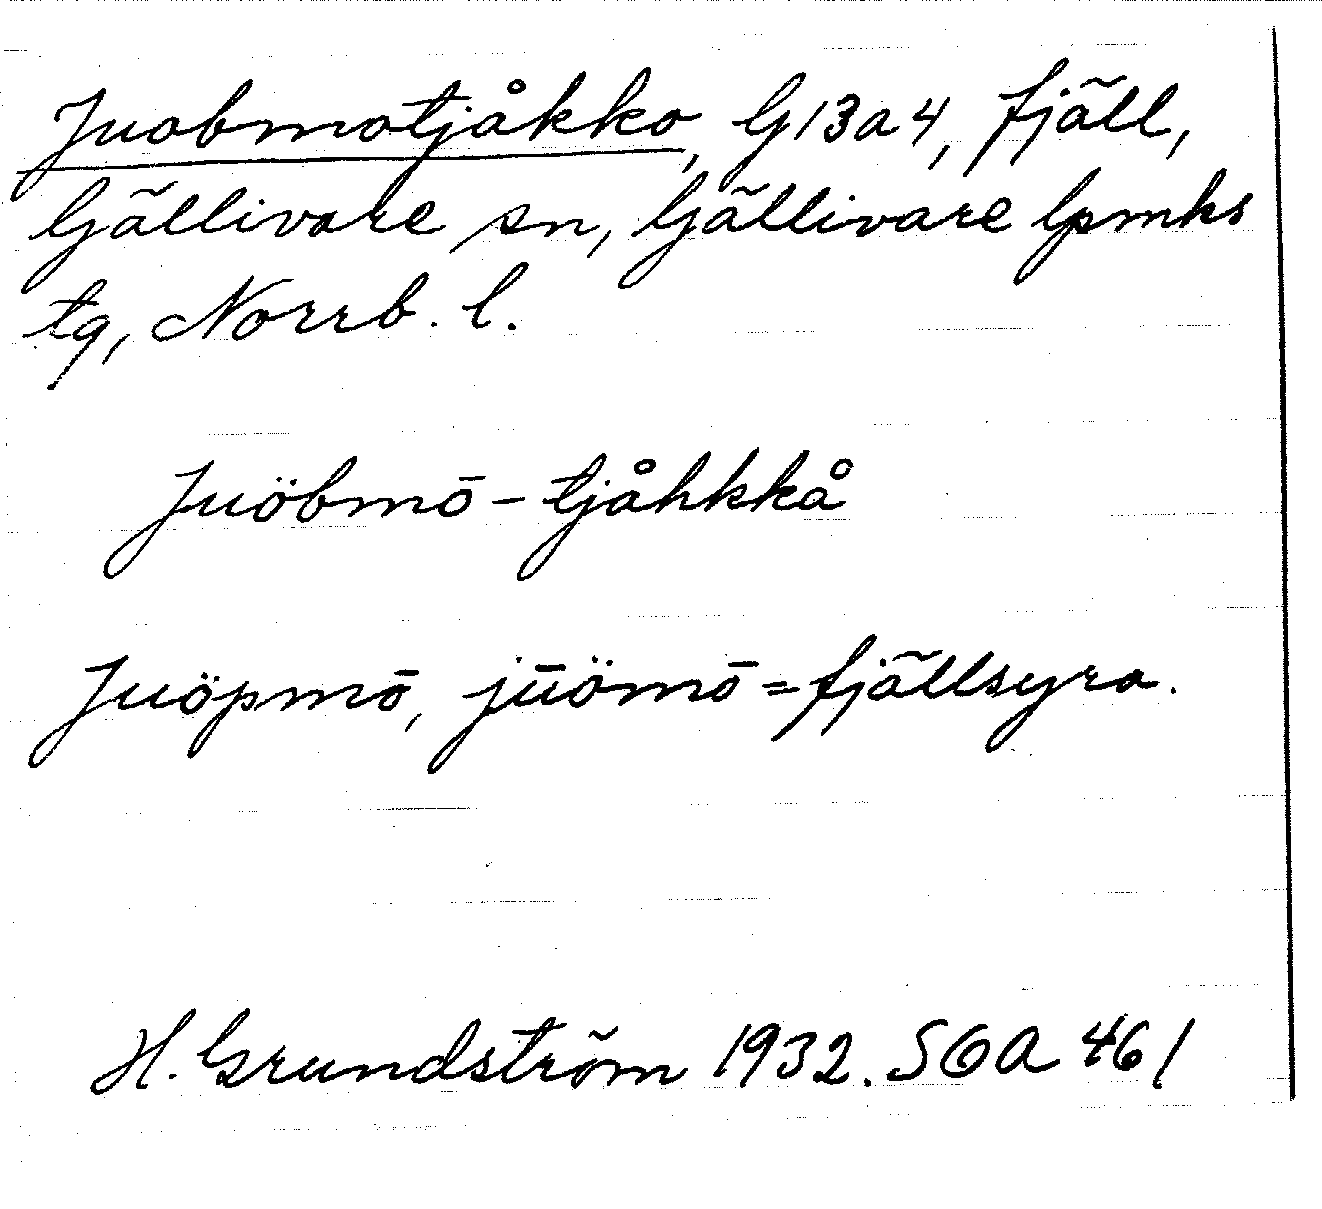 Juobmotjåkko, G13a4, fjäll,
Gällivare sn, Gällivare lpmks
tg, Norrb. l.
Juöbmō-tjåhkkå
Juöpmō, jūömō = fjällsyra.
H. Grundström 1932. SOA 461